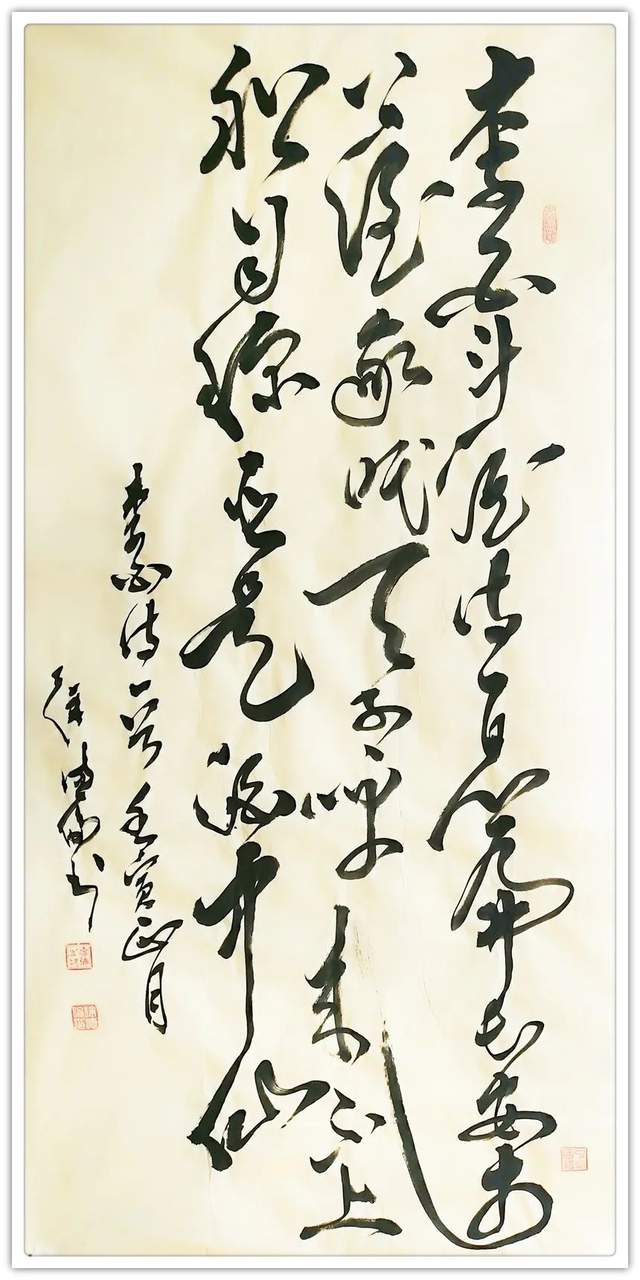 李白斗酒诗百篇长安市
上酒家眠天子呼来不上
船自称臣是酒中仙
李白诗一首壬寅正月
书